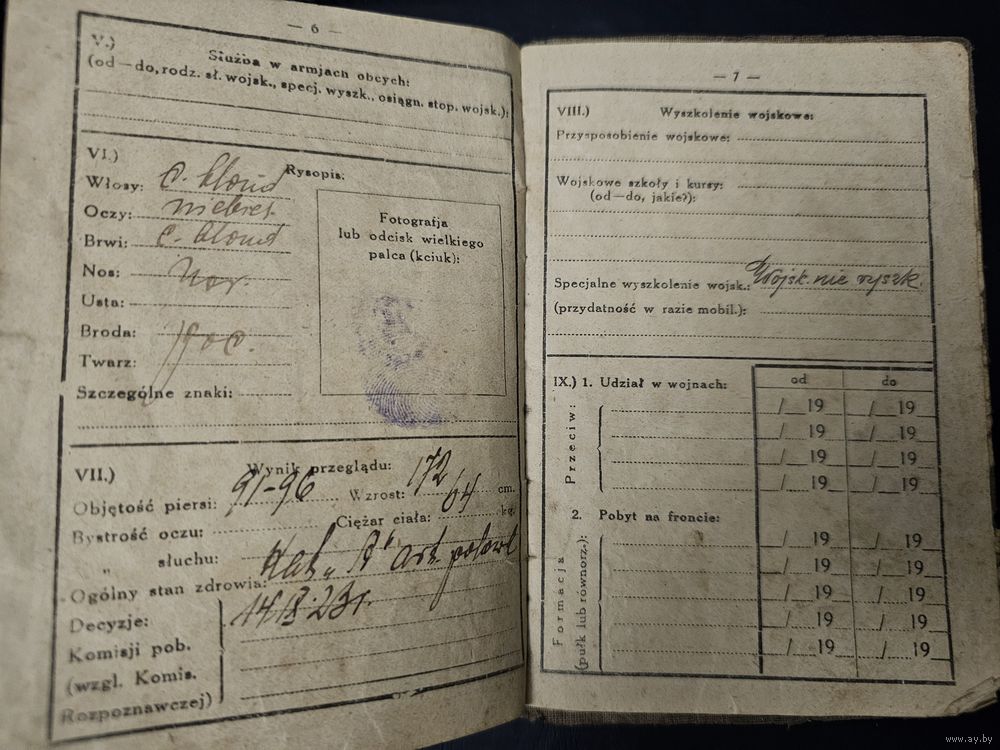 — 6 —
V.)
Służba w armjach obcych:
(od—do, rodz. sł. wojsk., specj. wyszk., osiągn. stop. wojsk.):
VI.) Rysopis:
Włosy: c. blond
Oczy: niebies.
Brwi: c. blond
Nos: nor.
Usta:
Broda:
Twarz:
Szczególne znaki:
Fotografja
lub odcisk wielkiego
palca (kciuk):
VII.) Wynik przeglądu:
Objętość piersi: 91-96 Wzrost: 172 cm.
Bystrość oczu: Ciężar ciała: 64 kg.
„ słuchu:
Ogólny stan zdrowia: Kat „A" art. polowa
Decyzje: 14/IX.23r.
Komisji pob.
(wzgl. Komis.
Rozpoznawczej)
— 7 —
VIII.) Wyszkolenie wojskowe:
Przysposobienie wojskowe:
Wojskowe szkoły i kursy:
(od—do, jakie?):
Specjalne wyszkolenie wojsk.: Wojsk. nie wyszk.
(przydatność w razie mobil.):
IX.) 1. Udział w wojnach: od do
Przeciw:
/ 19 / 19
/ 19 / 19
/ 19 / 19
/ 19 / 19
2. Pobyt na froncie:
Formacja
(pułk lub równorz.):
/ 19 / 19
/ 19 / 19
/ 19 / 19
/ 19 / 19
/ 19 / 19
www.ay.by